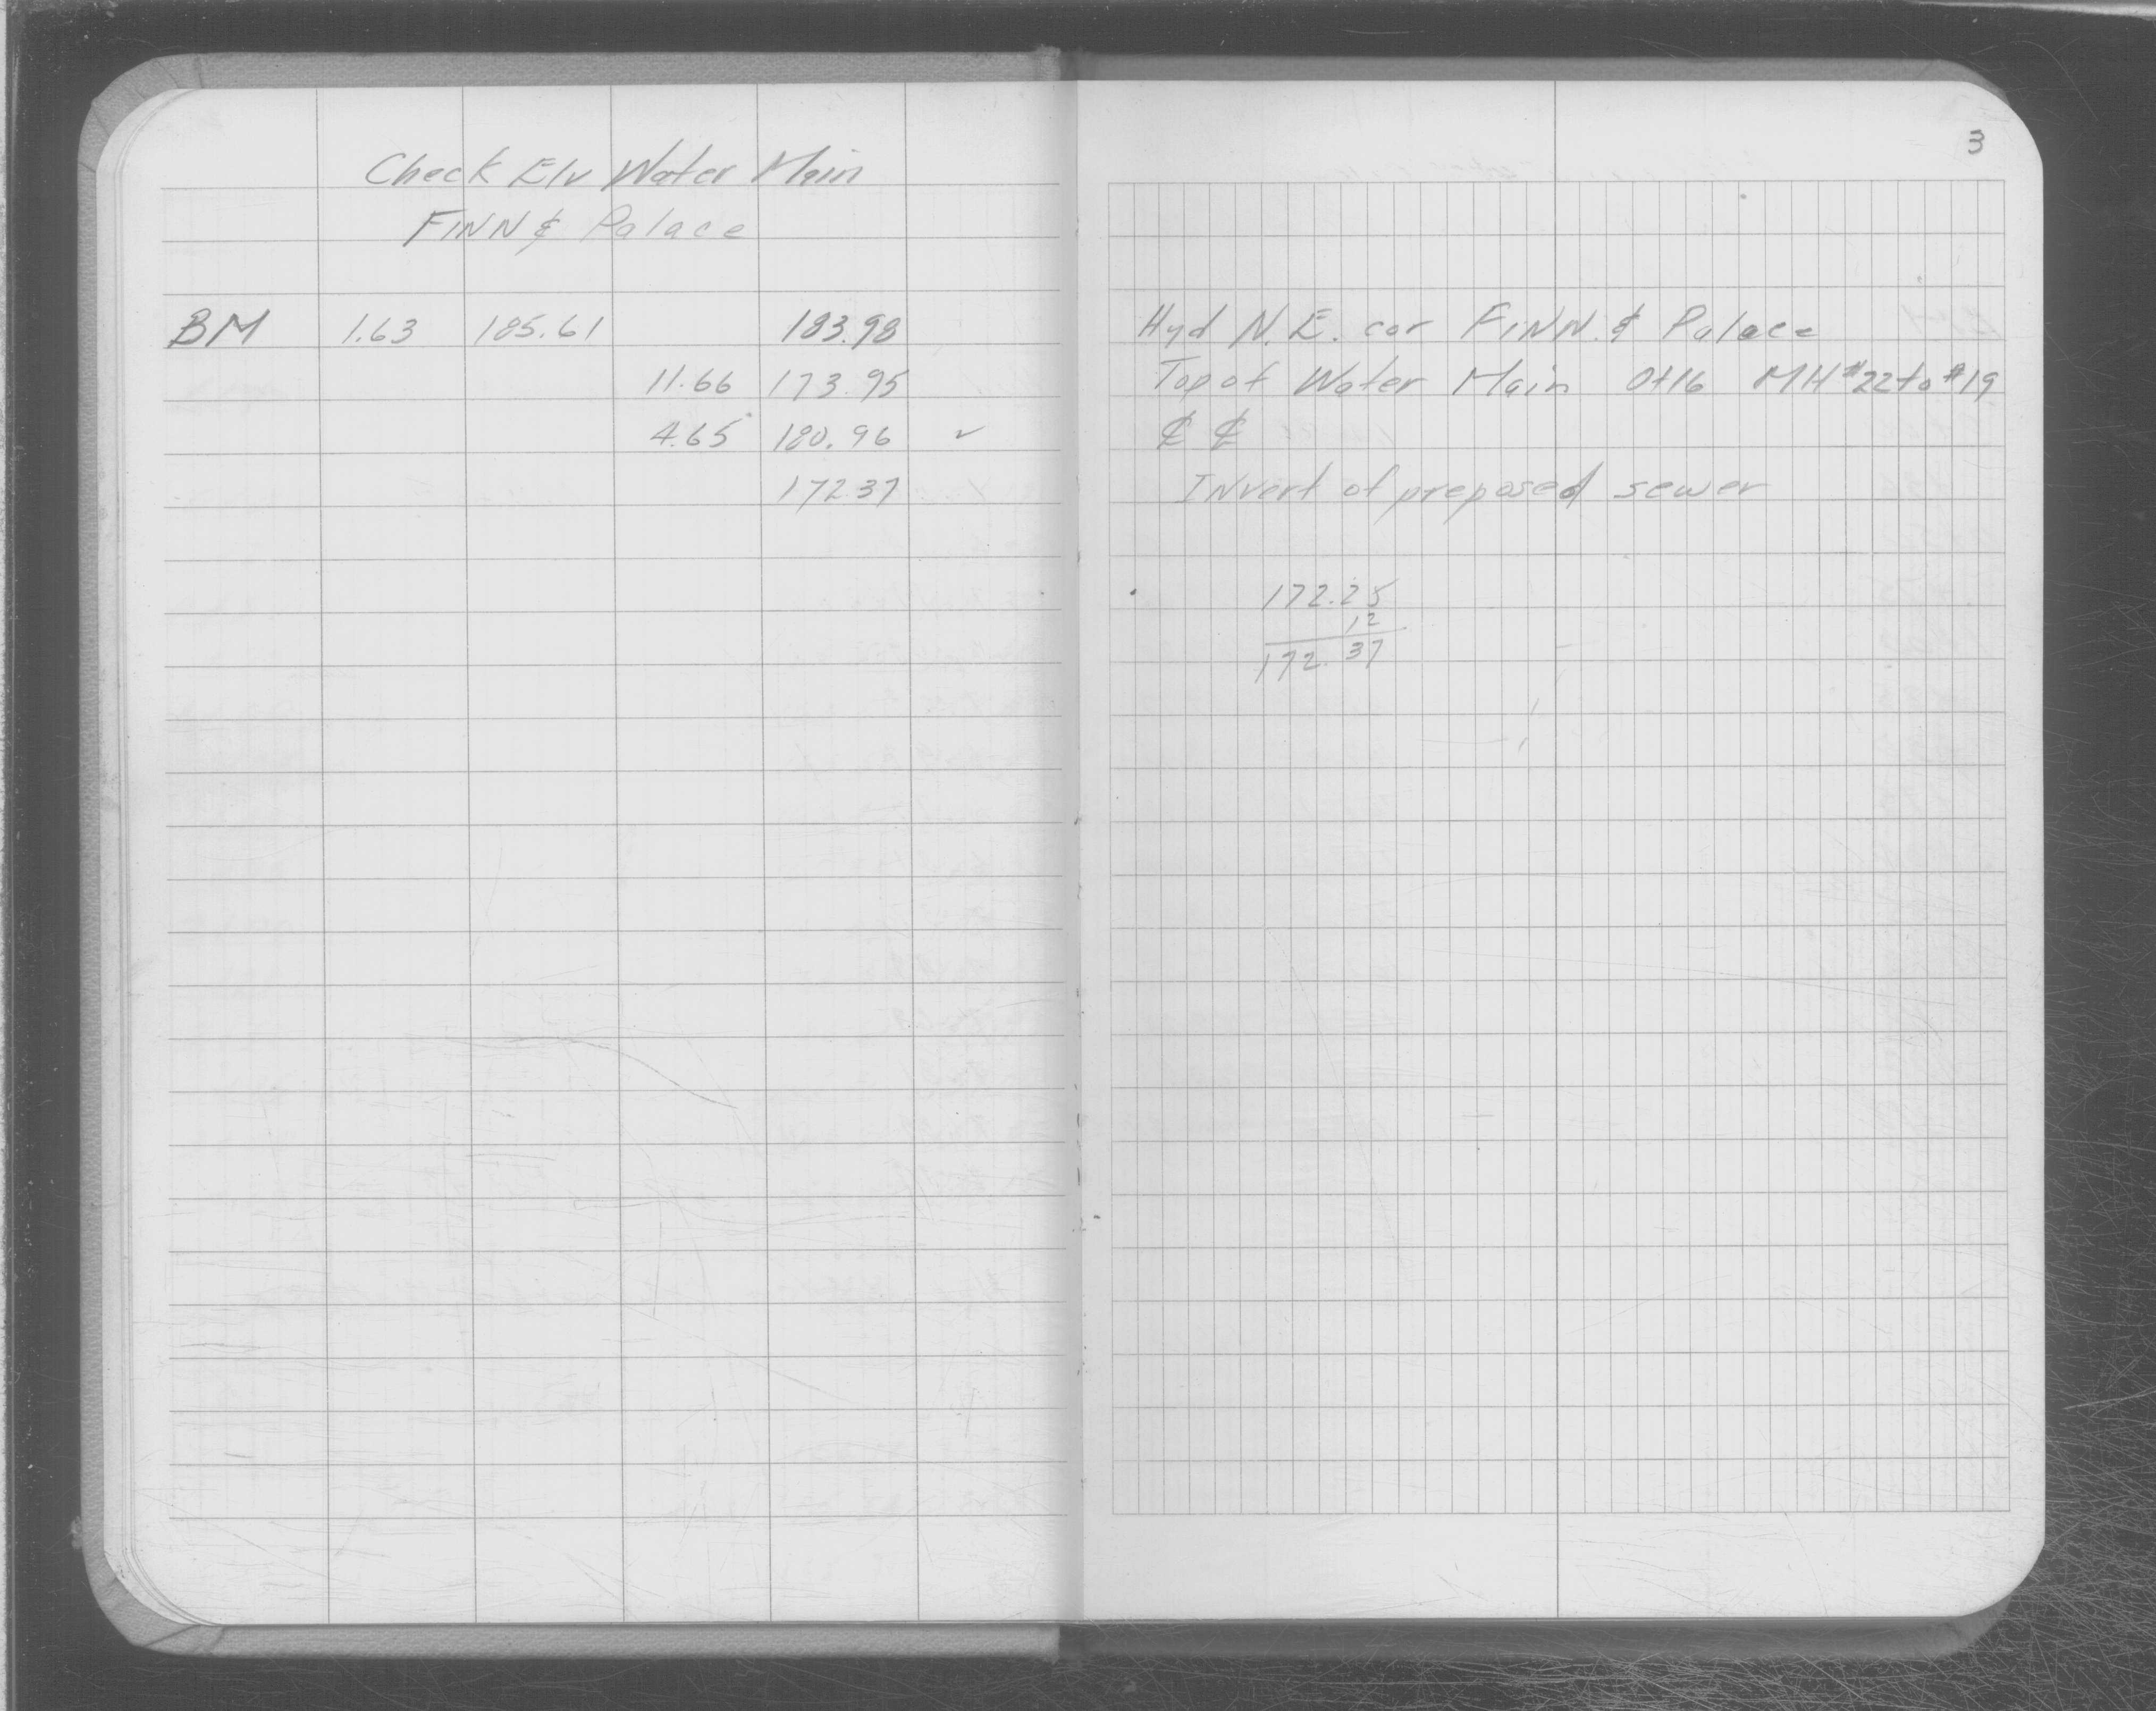 3
Check Elv Water Main
FINN & Palace
BM 1.63 185.61 183.98 Hyd N.E. cor FINN. & Palace
11.66 173.95 Top of Water Main 0+16 MH #22 to #19
4.65 180.96 ✓ ₵ ₵
172.37 Invert of preposed sewer
172.25
12
172.37